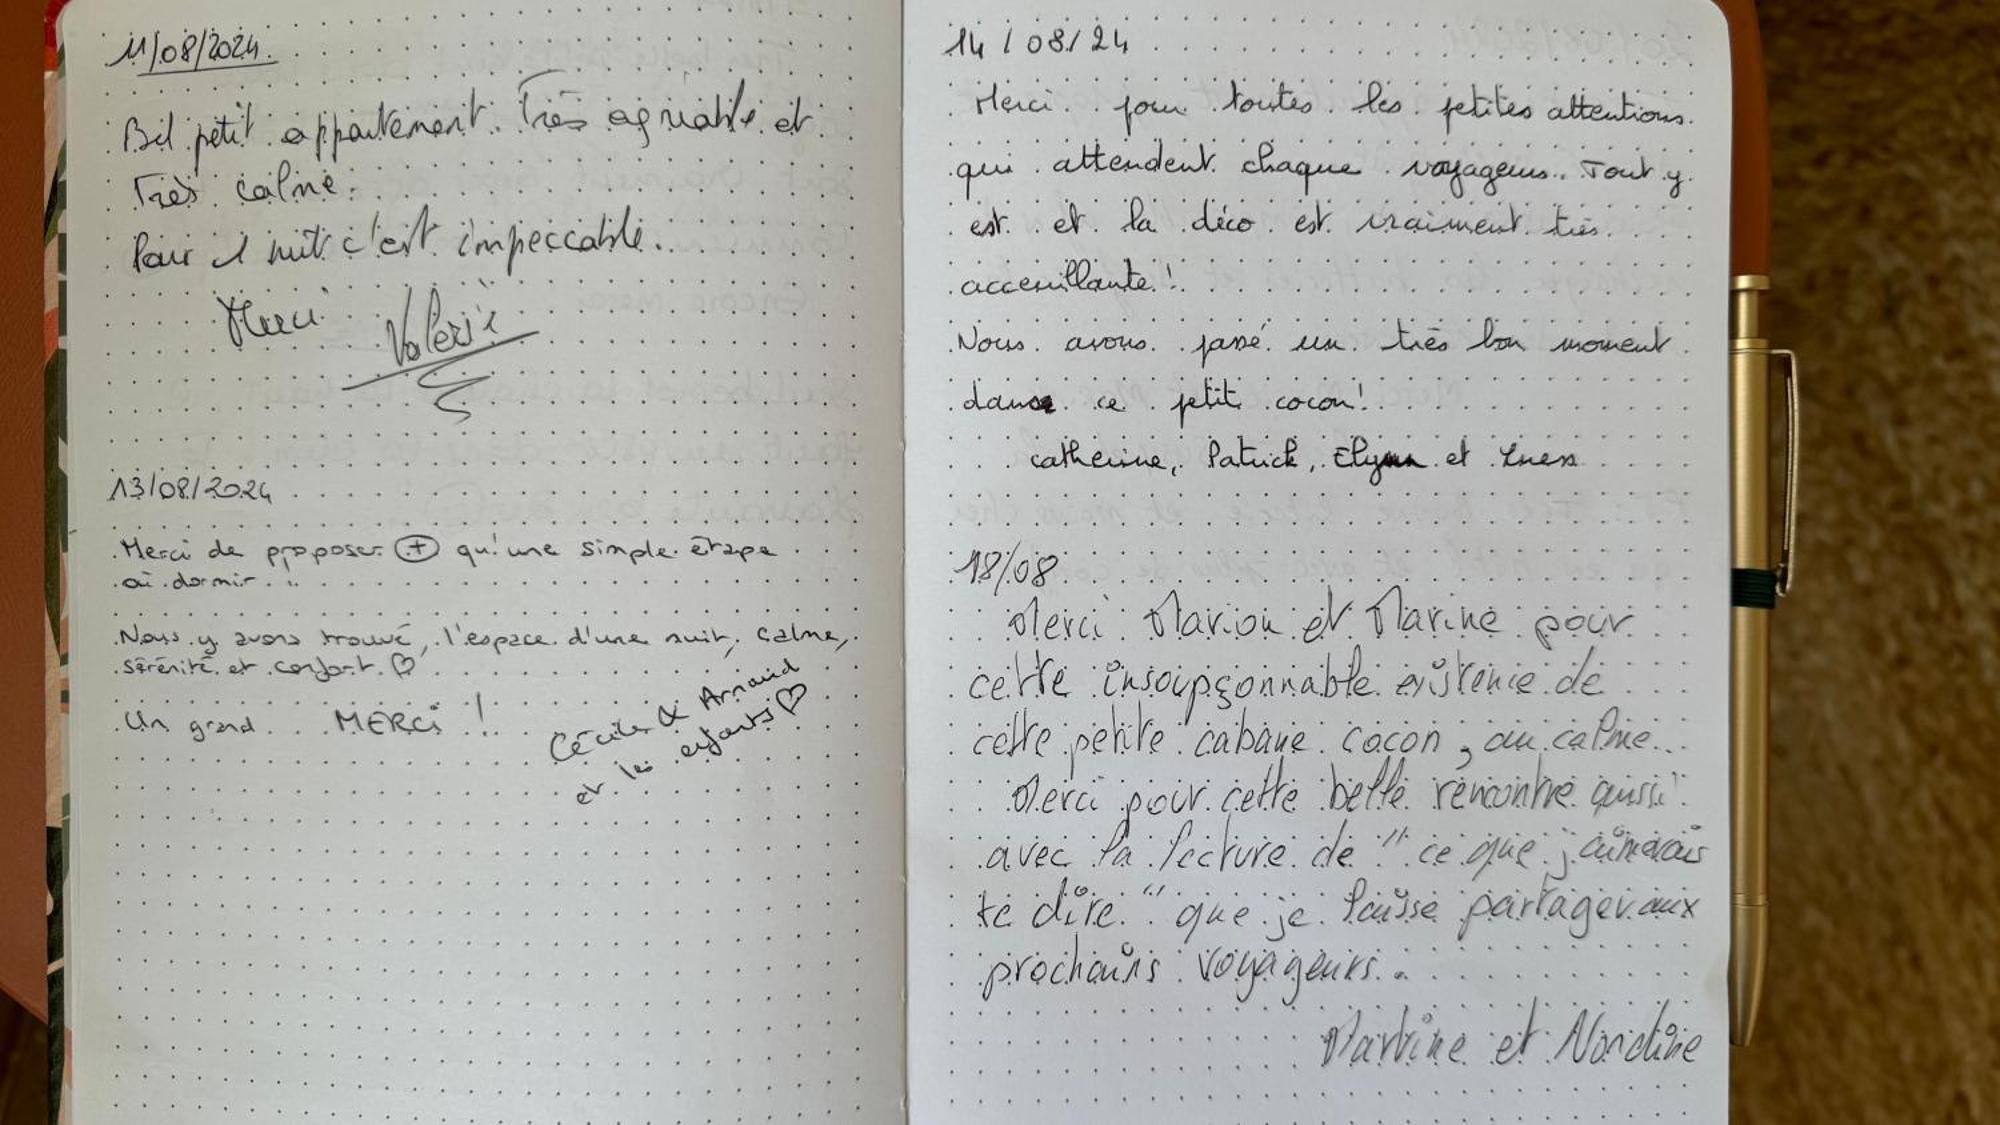 11/08/2024.
Bel petit appartement. Très agréable et
Très calme.
Pour 1 nuit c'est impeccable.
Merci Valérie
13/08/2024
Merci de proposer + qu'une simple étape
où dormir...
Nous y avons trouvé, l'espace d'une nuit, calme,
sérénité et confort. ♡
Un grand MERCi !
Cécile & Arnaud
et les enfants ♡
14/08/24
Merci pour toutes les petites attentions
qui attendent chaque voyageurs. Tout y
est et la déco est vraiment très
acceuillante !
Nous avons passé un très bon moment
dans ce petit cocon !
Catherine, Patrick, et
18/08
Merci Marion et Marine pour
cette insoupçonnable existence de
cette petite cabane cocon, au calme...
Merci pour cette belle rencontre aussi
avec la lecture de "ce que j'aimerais
te dire" que je laisse partager aux
prochains voyageurs.
Martine et Nordine